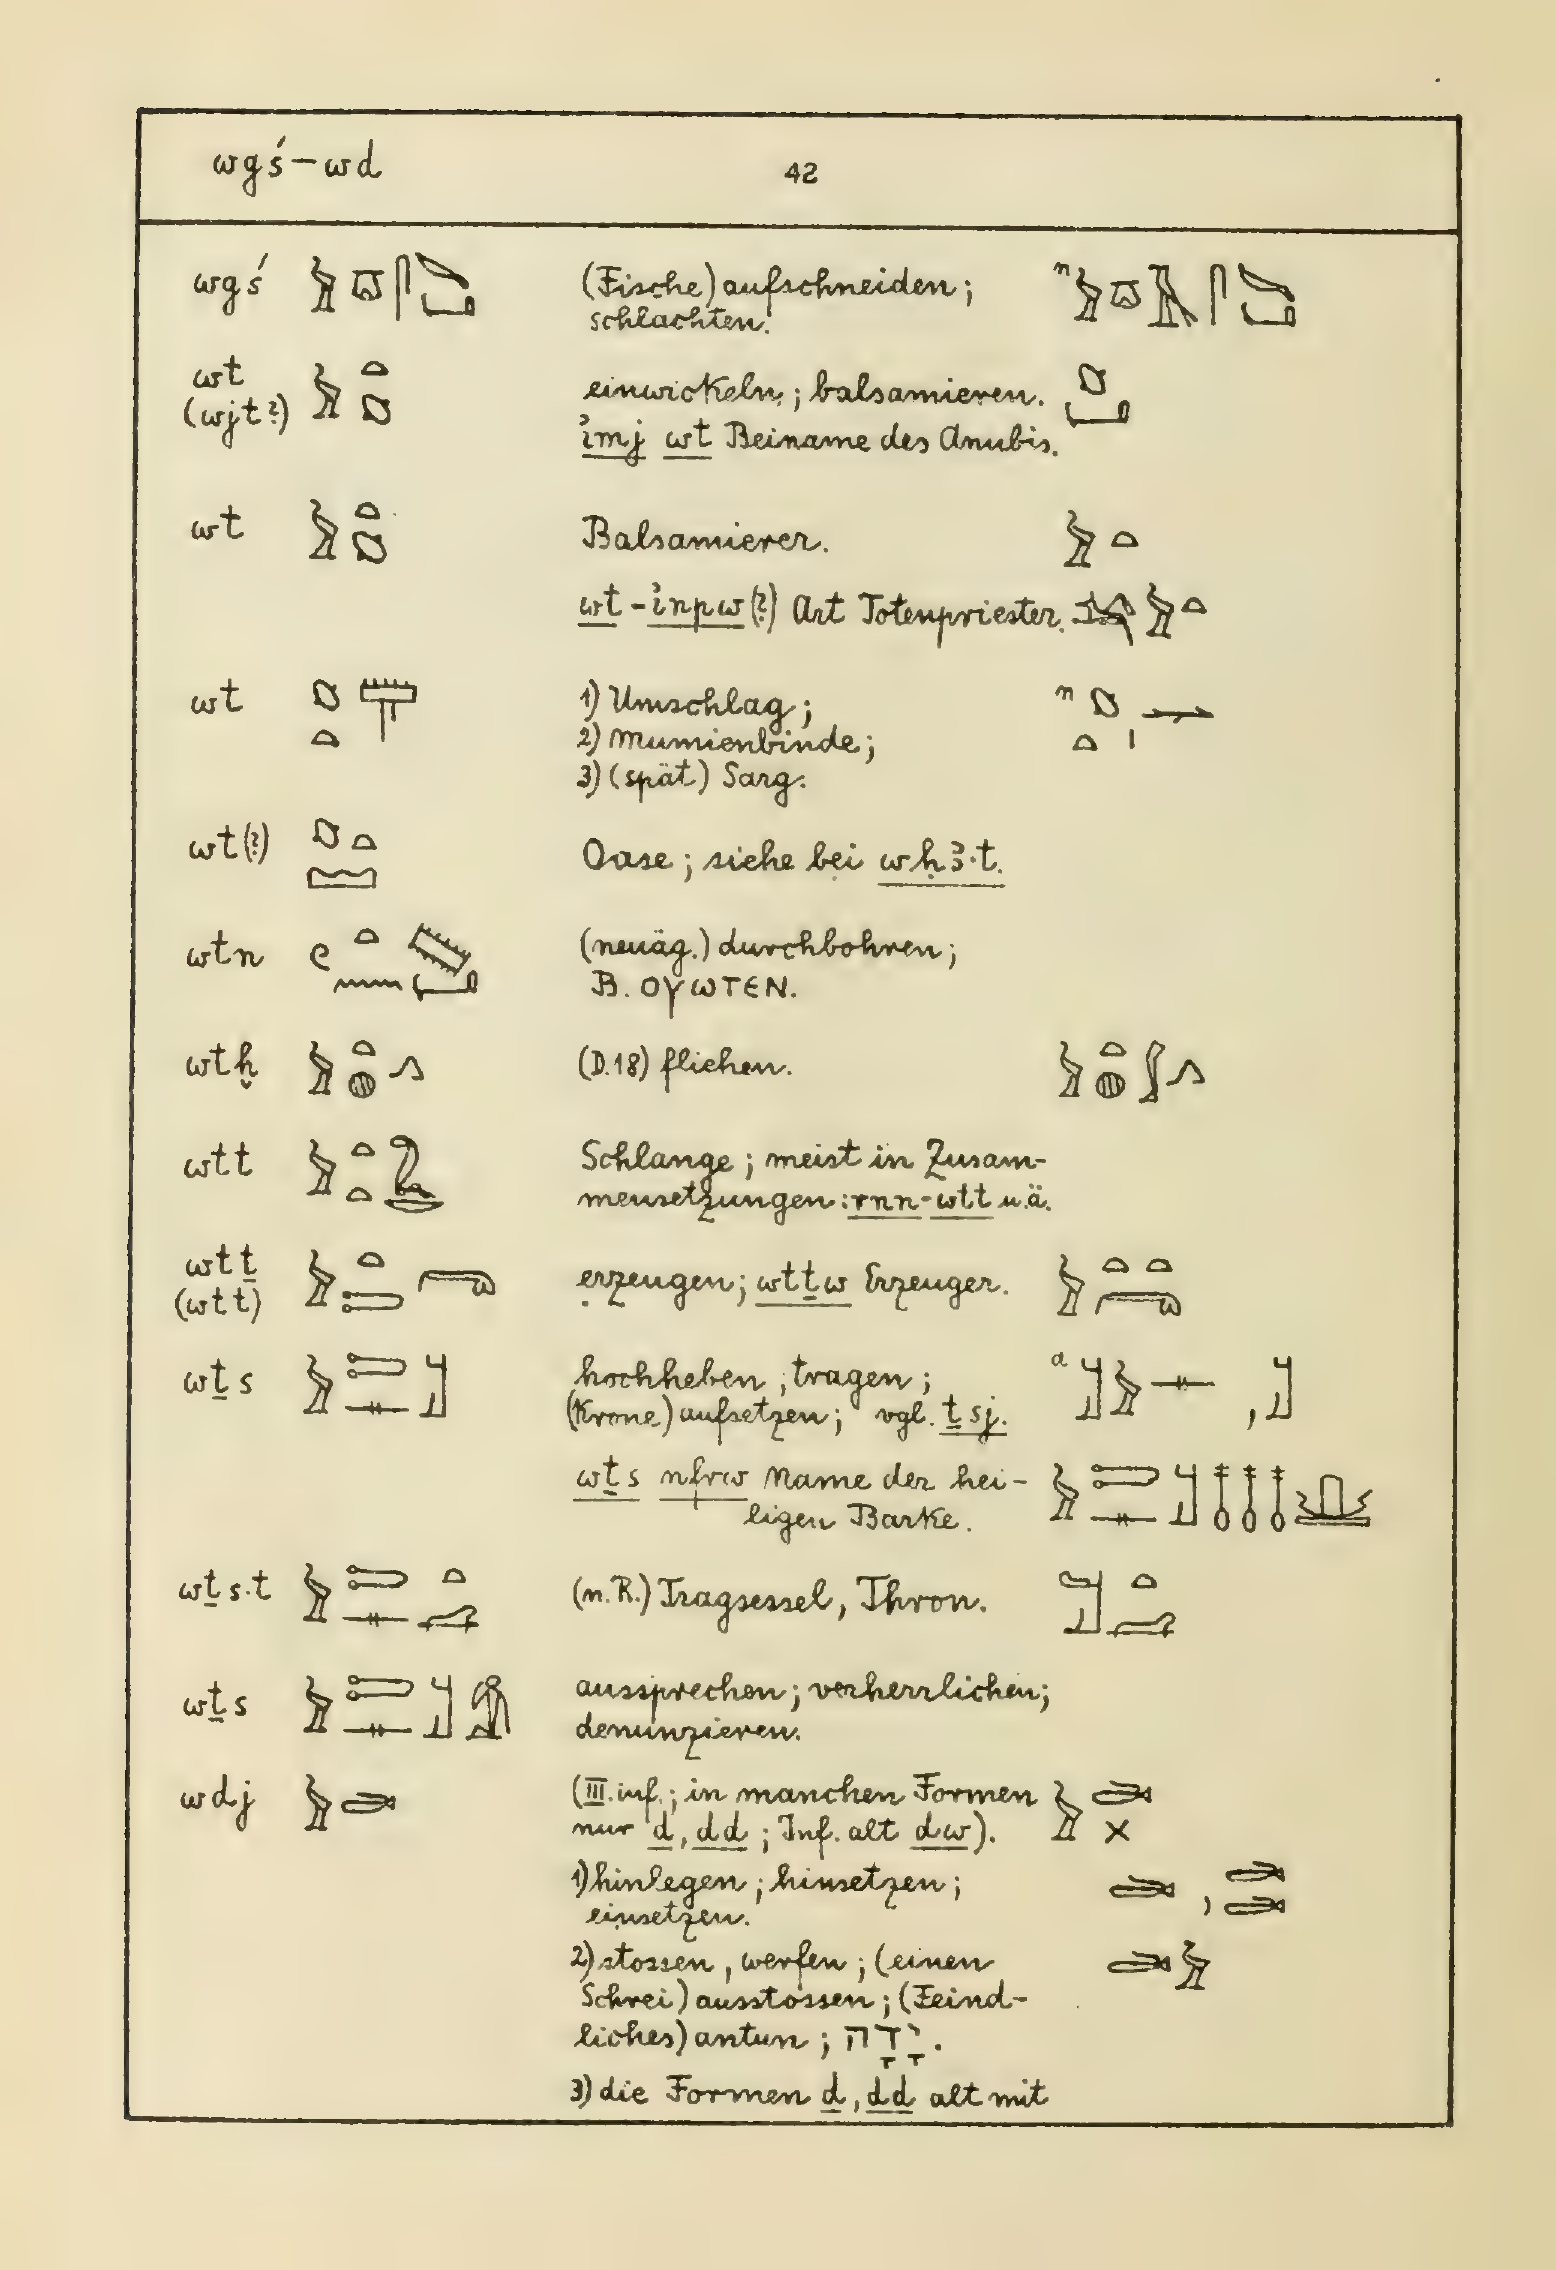 wgś – wd 42
wgś 𓅱𓎼𓋴𓌪𓂡 (Fische) aufschneiden; n 𓅱𓎼𓅓𓋴𓌪𓂡
schlachten.
wt 𓅱𓏏𓐎 einwickeln; balsamieren. 𓐎𓂡
(wjt?)
ỉmj wt Beiname des Anubis.
wt 𓅱𓏏𓐎 Balsamierer. 𓅱𓏏
wt-ỉnpw(?) Art Totenpriester. 𓅱𓏏
wt 𓐎𓏏 1) Umschlag; n 𓐎𓏏𓏤
2) Mumienbinde;
3) (spät) Sarg.
wt(?) 𓐎𓏏𓈉 Oase; siehe bei wḥꜣ·t.
wtn 𓏲𓏏𓈖𓂡 (neuäg.) durchbohren;
B. ⲞⲨⲰⲦⲈⲚ.
wtḫ 𓅱𓏏𓐍𓂻 (D.18) fliehen. 𓅱𓏏𓐍𓃀𓂻
wtt 𓅱𓏏𓏏 Schlange; meist in Zusam-
mensetzungen: rnn-wtt u.ä.
wtṯ 𓅱𓏏𓍿𓂸 erzeugen; wtṯw Erzeuger. 𓅱𓏏𓏏𓂸
(wtt)
wṯs 𓅱𓍿𓊃𓋀 hochheben, tragen; a 𓅱𓊃 ,
(Krone) aufsetzen; vgl. ṯsj.
wṯs nfrw Name der hei- 𓅱𓍿𓊃𓄤𓄤𓄤
ligen Barke.
wṯs·t 𓅱𓍿𓊃𓏏 (n.R.) Tragsessel, Thron.
wṯs 𓅱𓍿𓊃𓀁 aussprechen; verherrlichen;
denunzieren.
wdj 𓅱𓂧 (III. inf.; in manchen Formen 𓅱𓂧𓏴
nur d, dd; Inf. alt dw).
1) hinlegen; hinsetzen; 𓂧 , 𓂧𓂧
einsetzen.
2) stossen, werfen; (einen 𓂧𓅱
Schrei) ausstossen; (Feind-
liches) antun; יָדָה.
3) die Formen d, dd alt mit